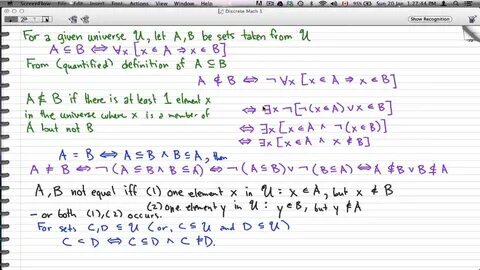 ScreenFlow File Edit View Insert Actions Tools Help
Sun 20 Jan 1:27:44 PM
Discrete Math 1
Show Recognition
For a given universe U, let A,B be sets taken from U
A ⊆ B ⇔ ∀x [x ∈ A ⇒ x ∈ B]
From (quantified) definition of A ⊆ B
A ⊈ B ⇔ ¬ ∀x [x ∈ A ⇒ x ∈ B]
A ⊈ B if there is at least 1 element x
in the universe where x is a member of
A but not B
⇔ ∃x ¬[¬(x ∈ A) ∨ x ∈ B]
⇔ ∃x [x ∈ A ∧ ¬(x ∈ B)]
⇔ ∃x [x ∈ A ∧ x ∉ B]
A = B ⇔ A ⊆ B ∧ B ⊆ A, then
A ≠ B ⇔ ¬(A ⊆ B ∧ B ⊆ A) ⇔ ¬(A ⊆ B) ∨ ¬(B ⊆ A) ⇔ A ⊈ B ∨ B ⊈ A
A, B not equal iff (1) one element x in U : x ∈ A, but x ∉ B
(2) one element y in U : y ∈ B, but y ∉ A
– or both (1),(2) occurs.
For sets C,D ⊆ U (or, C ⊆ U and D ⊆ U)
C ⊂ D ⇔ C ⊆ D ∧ C ≠ D.